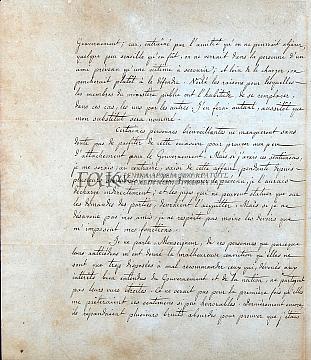 Gouvernement; car, entraîné par l'amitié qu'on ne pourrait abjurer,
quelque peu sensible qu'on fut, on ne verrait dans la personne d'un
ami prévenu qu'une victime à secourir; et loin de le charger, on
pencherait plutôt à le défendre. Voilà les raisons pour lesquelles
les membres du ministère public ont l'habitude de se remplacer,
dans ces cas, les uns par les autres; j'en ferai autant, aussitôt que
mon substitut sera nommé.
Certaines personnes bienveillantes ne manqueront sans
doute pas de profiter de cette occasion pour prouver mon peu
d'attachement pour le Gouvernement. Mais si j'avais ces sentiments,
je me serais, au contraire, saisi de cette affaire pendant
prévenu, j'aurais
indirectement; et les juges qui ne peuvent statuer que sur
les demandes des parties, devraient l'acquitter. Mais si je ne
désavoue pas mes amis, je ne respecte pas moins les devoirs que
m'imposent mes fonctions.
Je ne parle, Monseigneur, de ces personnes que parce que
leurs antécédens m'ont donné la malheureuse conviction qu'elles ne
sont que trop disposées à mal recommander ceux qui, dévoués aux
intérêts bien entendus du Gouvernement et de la nation, ne partagent
pas leurs vues étroites. Ce ne serait pas pour la première fois qu'elles
me prêteraient ces sentiments si peu honorables: dernièrement encore,
ils répandaient plusieurs bruits absurdes pour prouver que j'étais